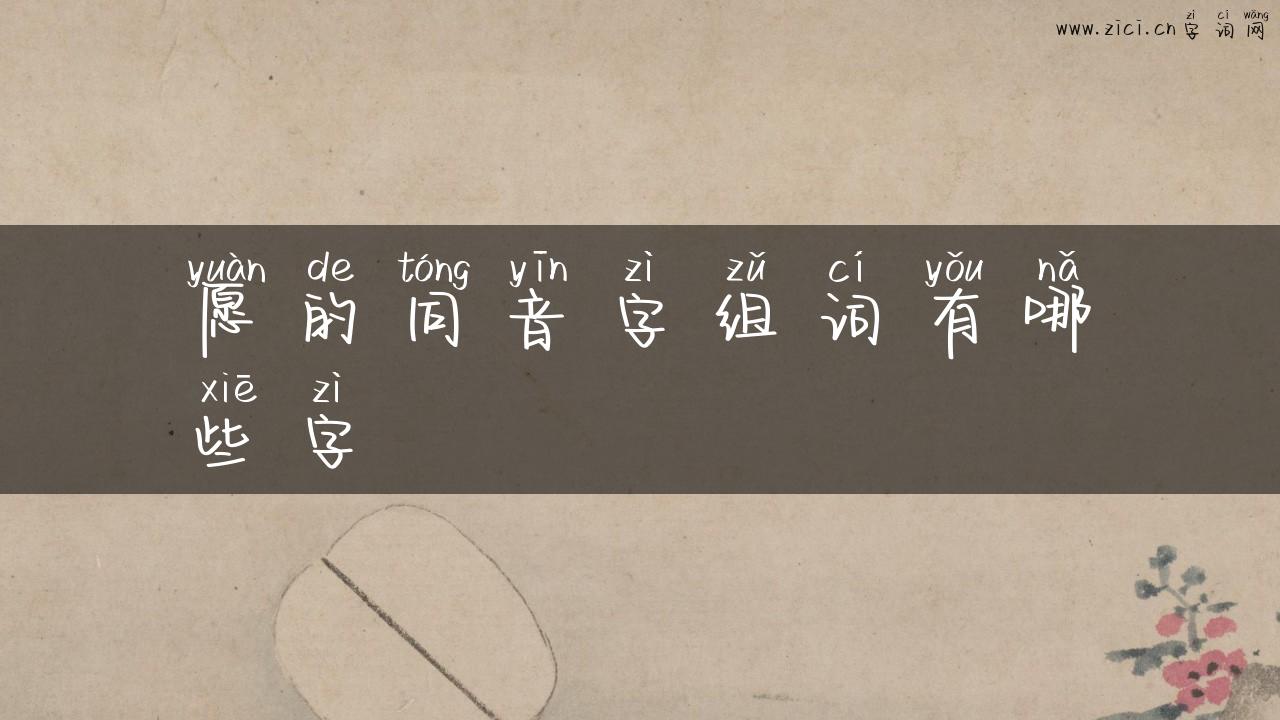 zì cí wǎng
www.zici.cn字词网
yuàn de tóng yīn zì zǔ cí yǒu nǎ
愿的同音字组词有哪
xiē zì
些字